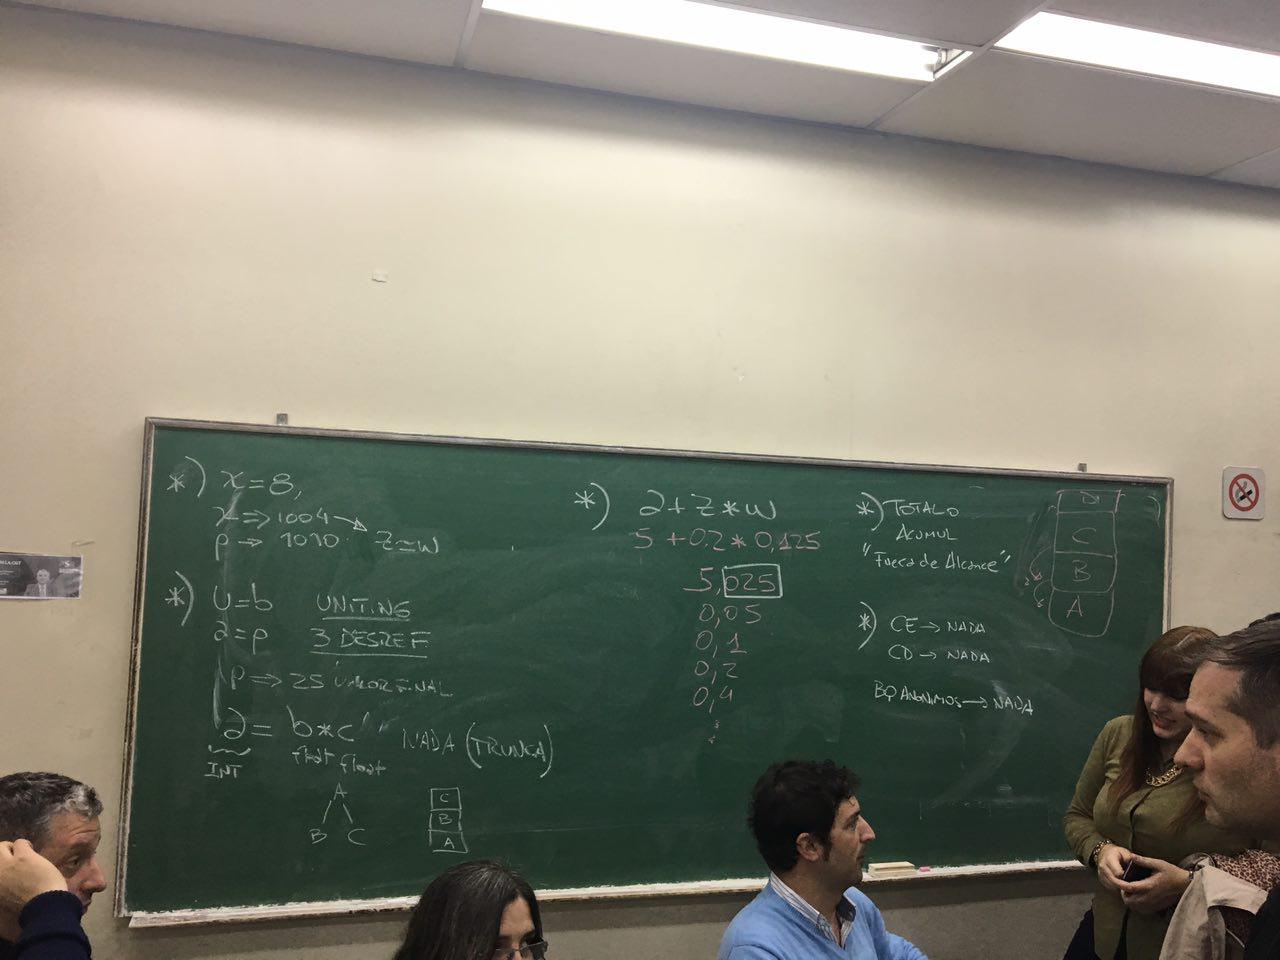 *) x=8,
x ⇒ 1004
p → 1010 z=w
*) U=b UNITING
a=p 3 DESREF
p ⇒ 25 VALOR FINAL
a = b*c NADA (TRUNCA)
INT float float
A
B C
C
B
A
*) a+z*w
5+0,2*0,125
5,025
0,05
0,1
0,2
0,4
*) TOTAL0
ACUMUL
"Fuera de Alcance"
*) CE → NADA
CD → NADA
BQ ANONIMOS → NADA
D
C
B
A